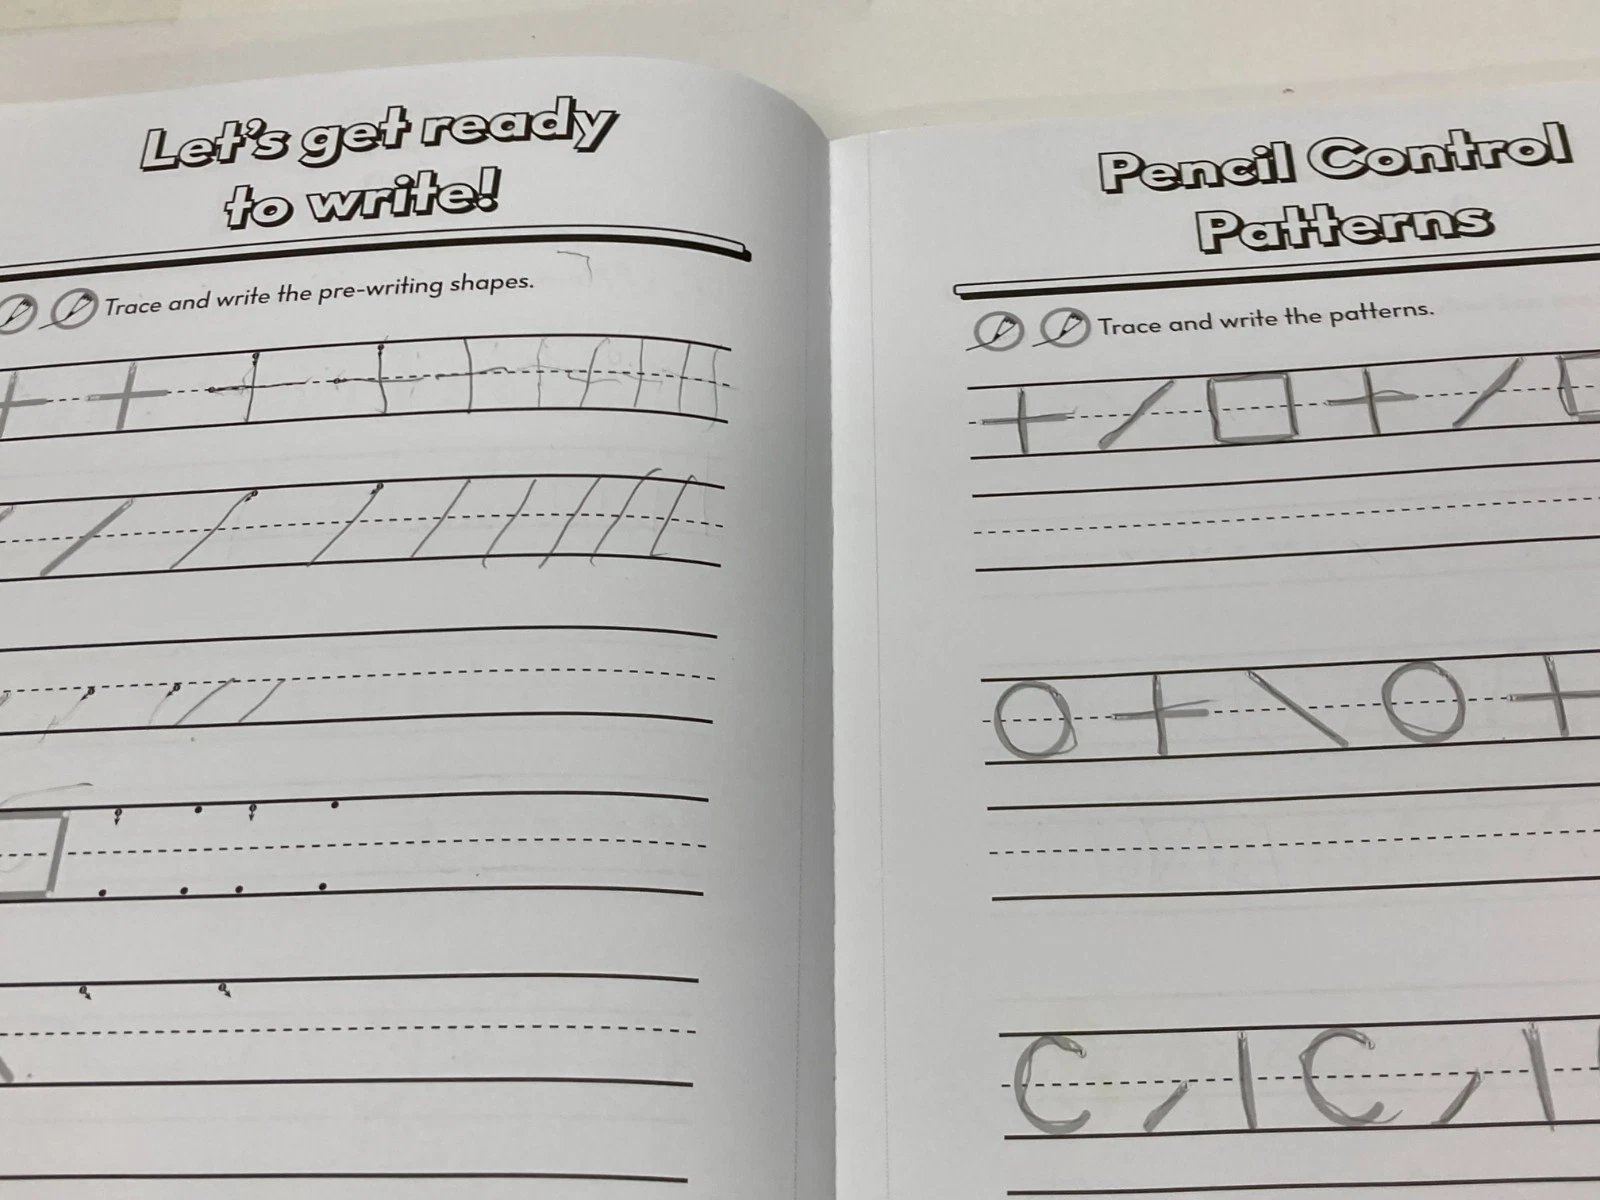 Let's get ready
to write!
Trace and write the pre-writing shapes.
Pencil Control
Patterns
Trace and write the patterns.